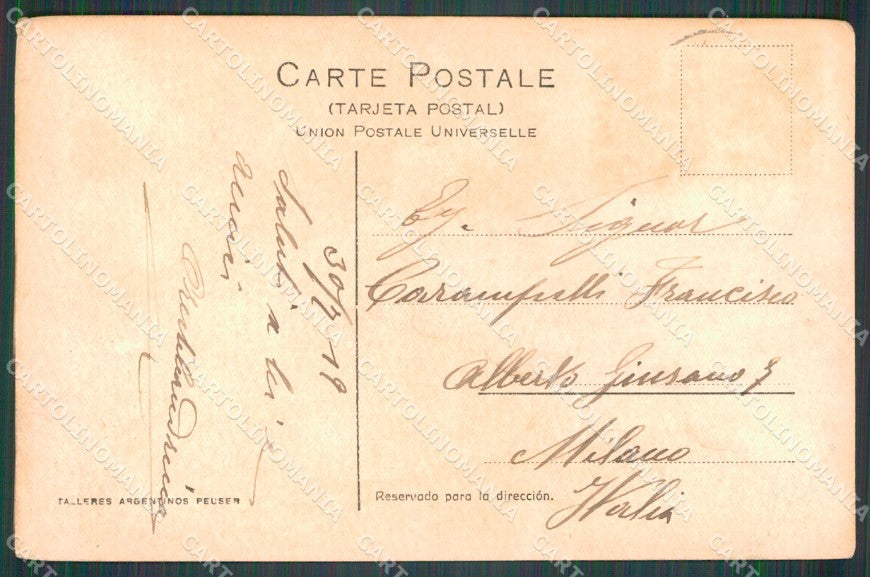 CARTE POSTALE
(TARJETA POSTAL)
UNION POSTALE UNIVERSELLE
30/7-19
Saluti a lei
Signor
Francisco
Alberto Giusano 7
Milano
Italia
TALLERES ARGENTINOS PEUSER
Reservado para la dirección.
CARTOLINOMANIA